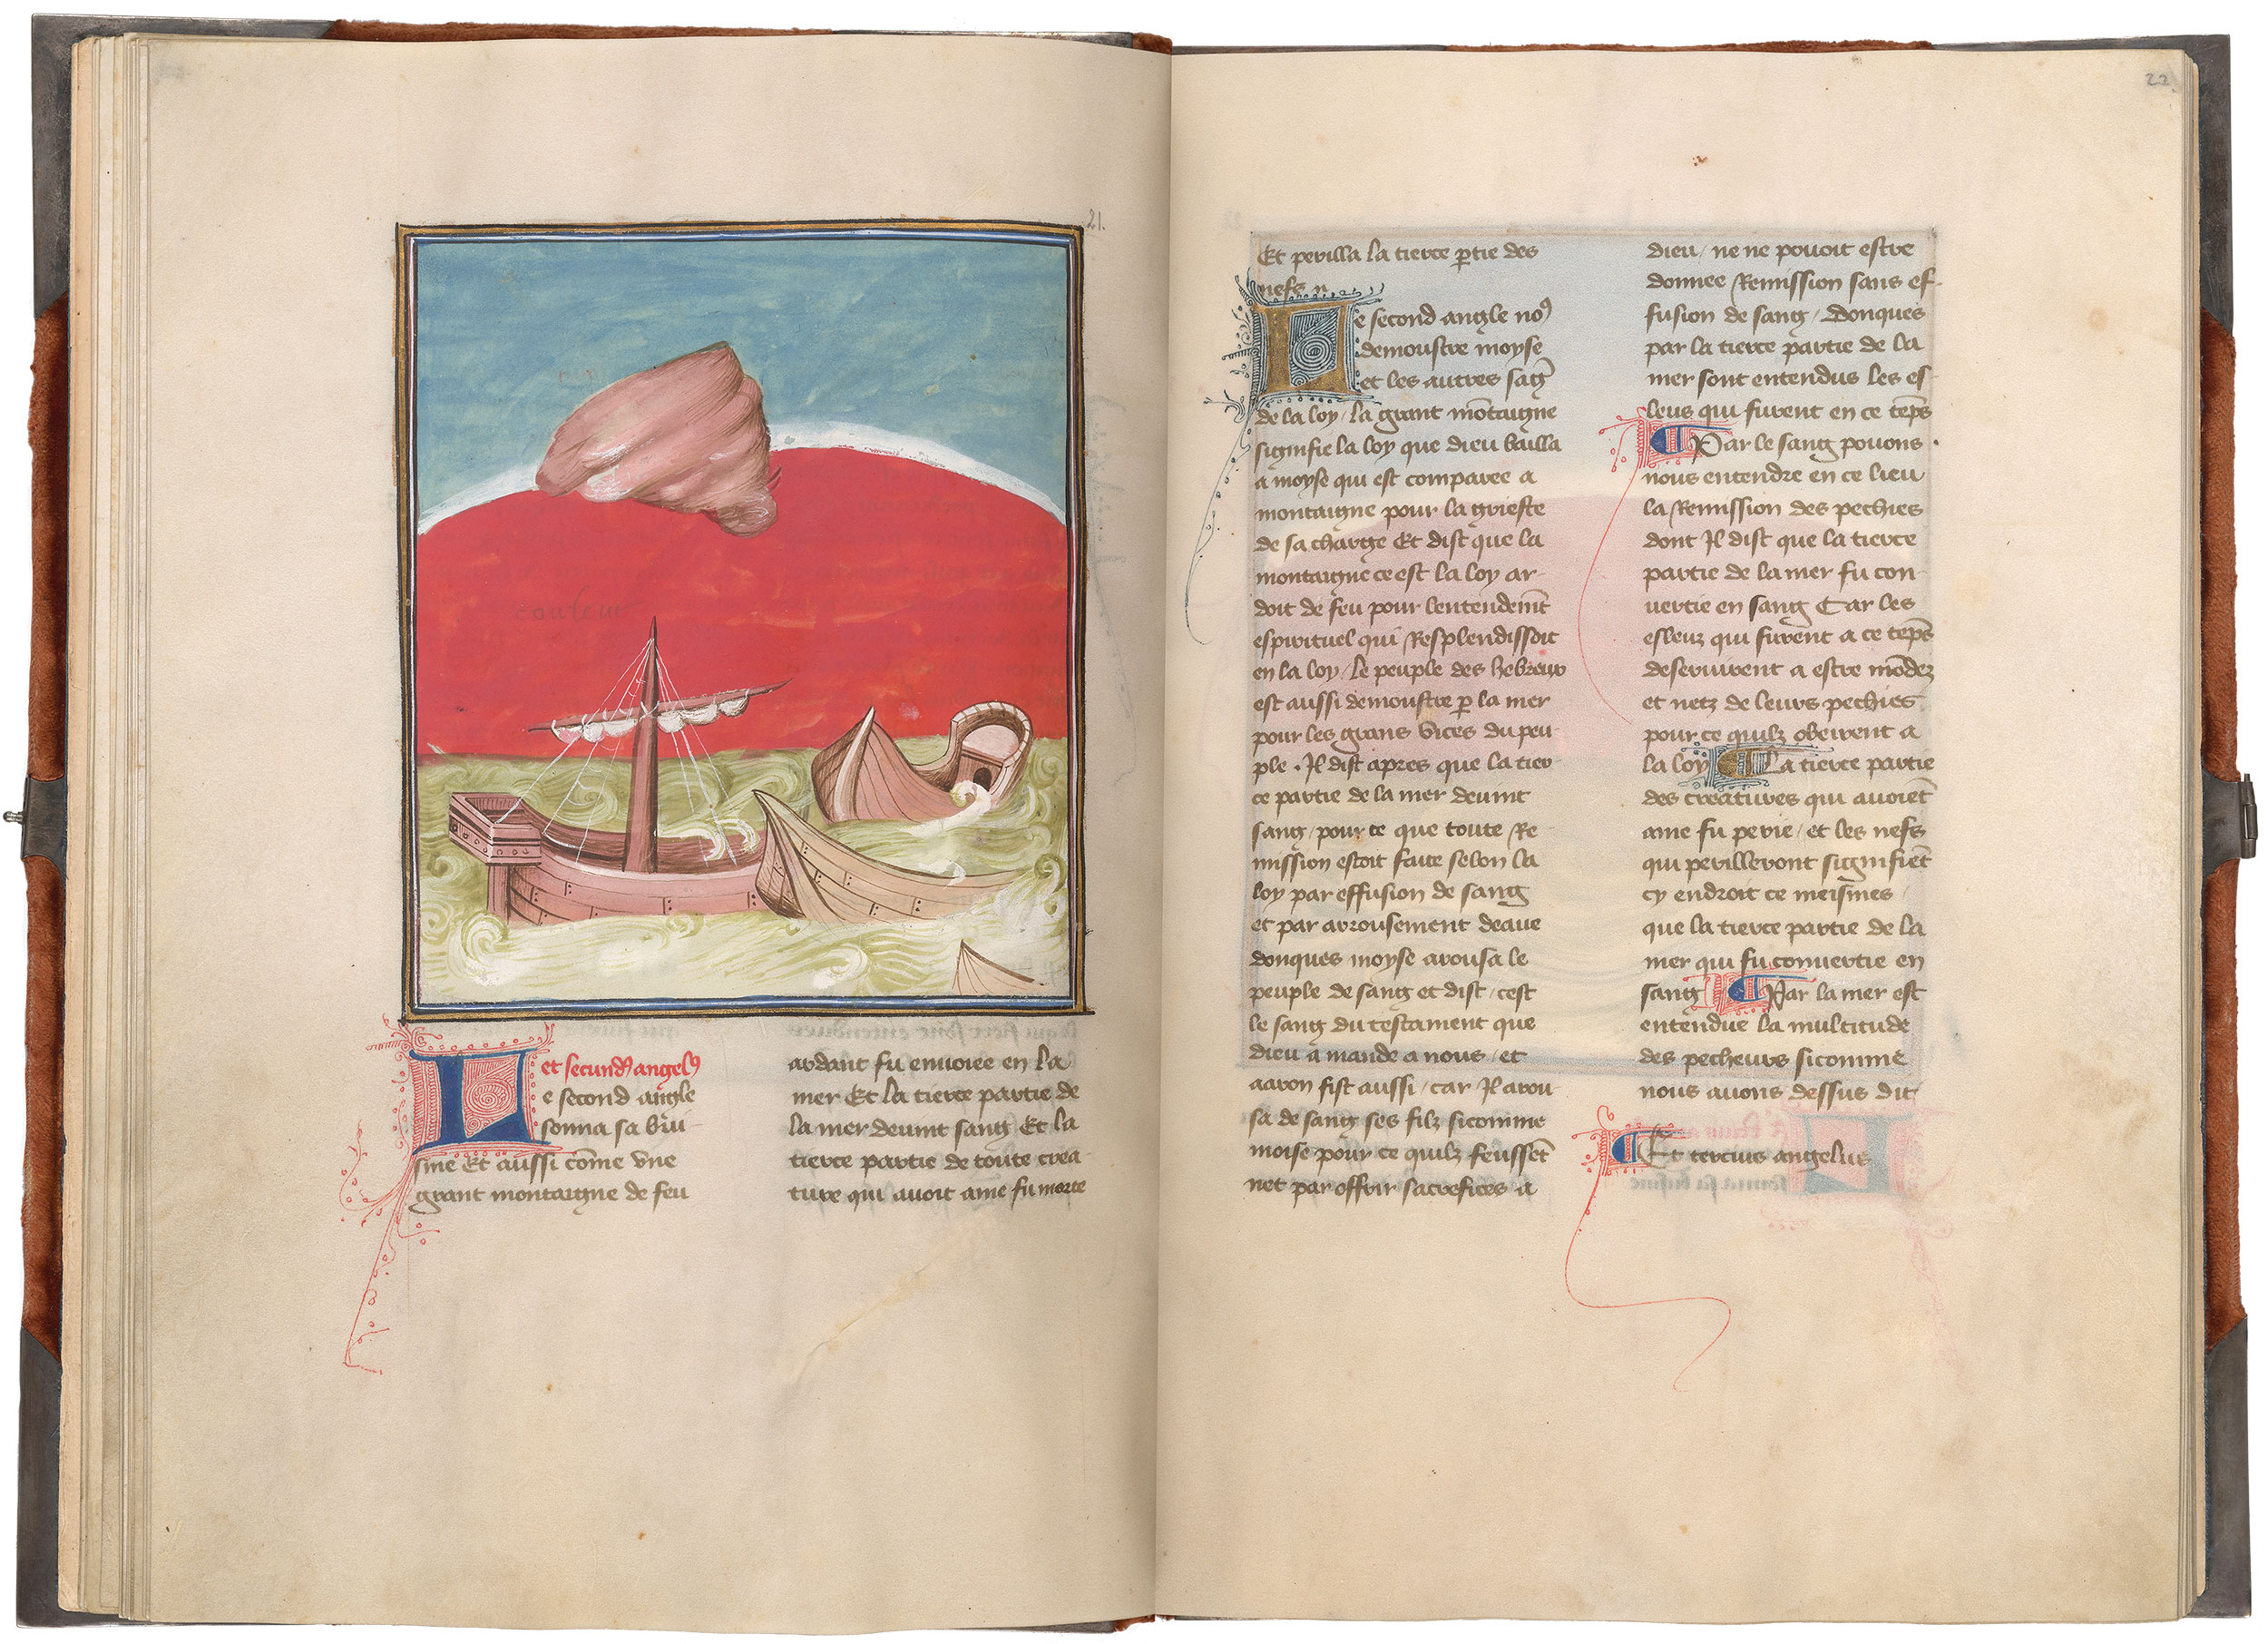 21.
couleur
et secund9 angel9
Le second angle
sonna sa bui-
sine Et aussi cōme vne
grant montaigne de feu
ardant fu enuoiee en la
mer Et la tierce partie de
la mer deuint sang Et la
tierce partie de toute crea-
ture qui auoit ame fu morte
22
Et perilla la tierce ꝑtie des
nefs
Le second angle no9
demoustre moyse
et les autres sag̃
de la loy / la grant mōtaigne
signifie la loy que dieu bailla
a moyse qui est comparee a
montaigne pour la griefte
de sa charge Et dist que la
montaigne ce est la loy ar-
doit de feu pour lentendem̄t
espirituel qui Resplendissoit
en la loy / le peuple des hebreux
est aussi demoustre ꝑ la mer
pour les grans vices du peu-
ple . Il dist apres que la tier-
ce partie de la mer deuint
sang / pour ce que toute Re-
mission estoit faite selon la
loy par effusion de sang
et par arrousement deaue
donques moyse arousa le
peuple de sang et dist / cest
le sang du testament que
dieu a mande a nous / et
aaron fist aussi / car Il arou-
sa de sang ses filz sicomme
moise pour ce quilz feussēt
net par offrir sacrefices a
dieu / ne ne pouoit estre
donnee Remission sans ef-
fusion de sang / Donques
par la tierce partie de la
mer sont entendus les es-
leus qui furent en ce tēps
¶ Par le sang pouons
nous entendre en ce lieu
la Remission des pechies
dont Il dist que la tierce
partie de la mer fu con-
uertie en sang Car les
esleuz qui furent a ce tēps
deseruirent a estre mōdez
et netz de leurs pechies
pour ce quilz obeirent a
la loy ¶ La tierce partie
des creatures qui auoiēt
ame fu perie / et les nefs
qui perillerent signifiēt
cy endroit ce meismes /
que la tierce partie de la
mer qui fu conuertie en
sang ¶ Par la mer est
entendue la multitude
des pecheurs sicomme
nous auons dessus dit
¶ Et tercius angelus